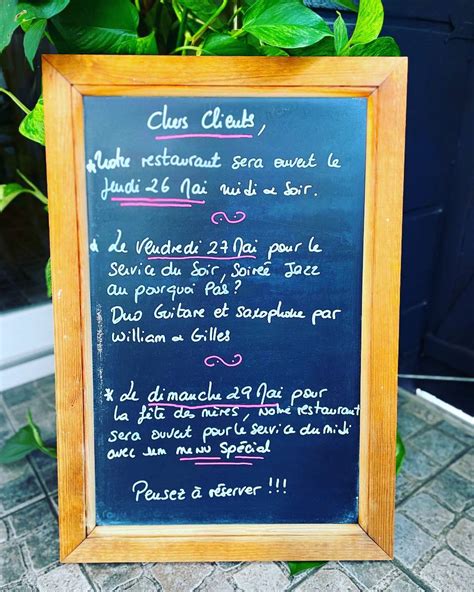 Chers Clients,
* Notre restaurant sera ouvert le
jeudi 26 Mai midi & Soir.
* Le Vendredi 27 Mai pour le
Service du Soir, Soirée Jazz
au pourquoi Pas?
Duo Guitare et saxophone par
William & Gilles
* Le dimanche 29 Mai pour
la fête des mères, Notre restaurant
sera ouvert pour le service du midi
avec un menu Spécial
Pensez à réserver !!!